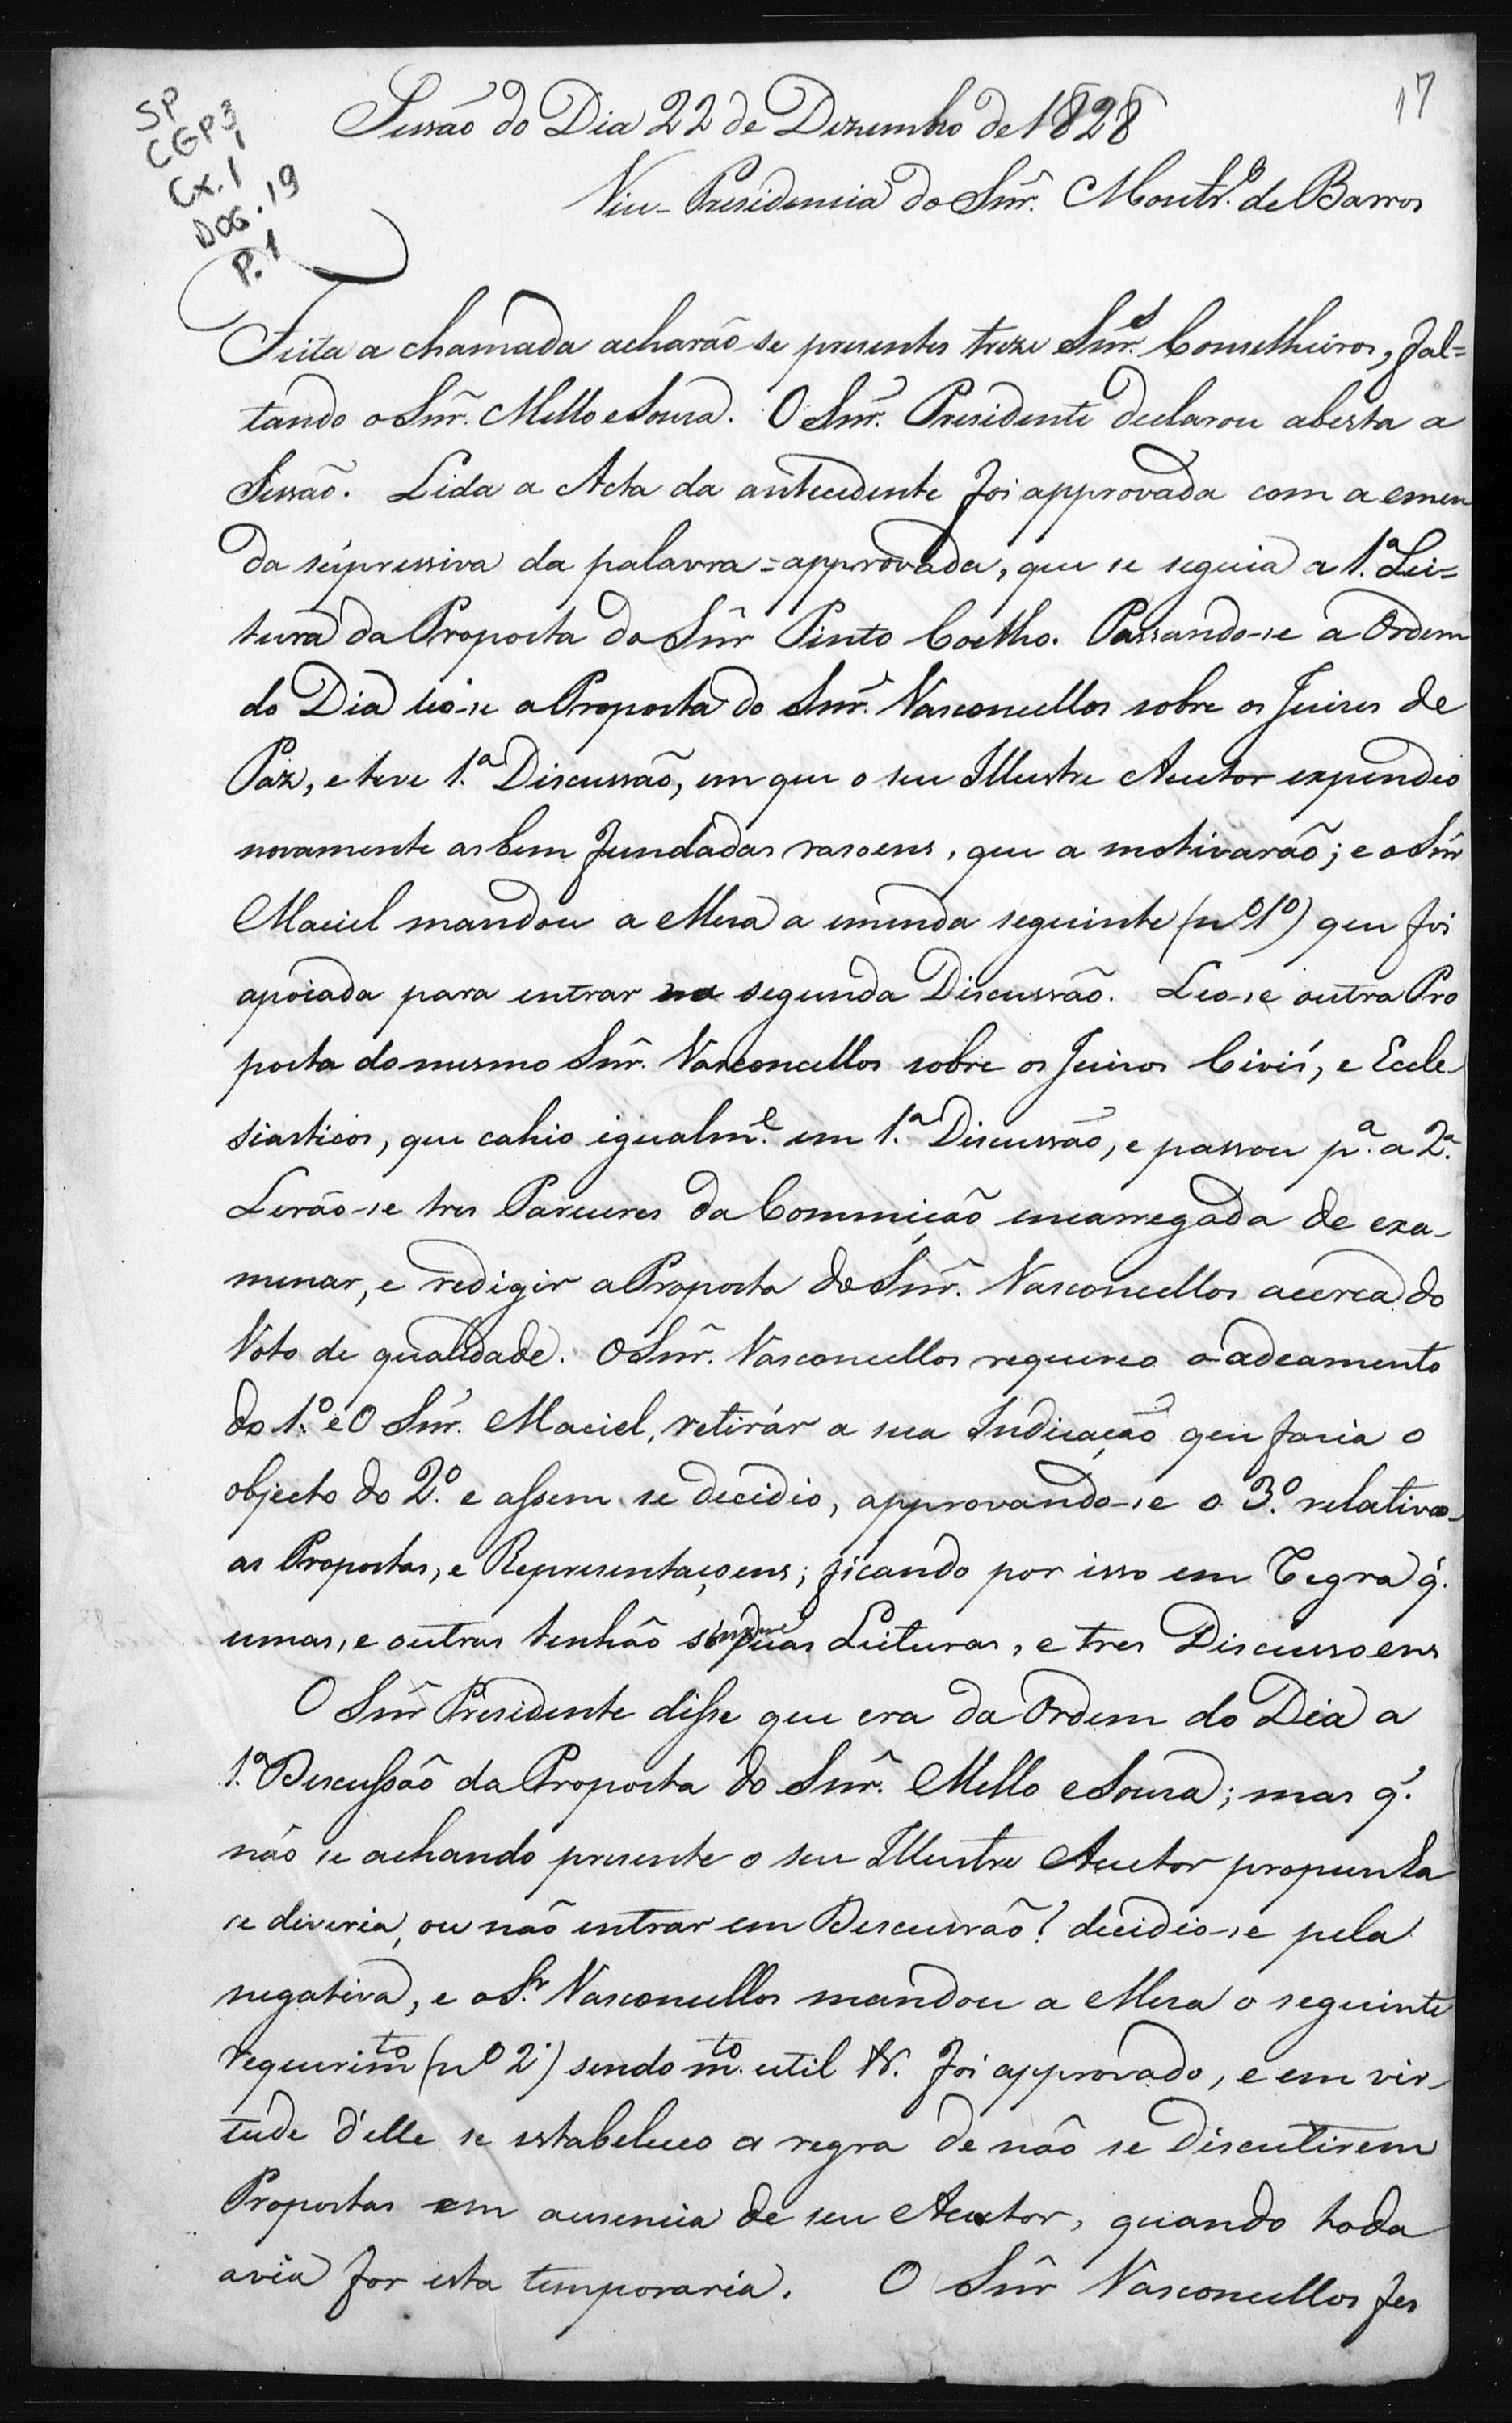 17
SP
CGP3
Cx. 1
DOC. 19
P. 1
Sessão do Dia 22 de Dezembro de 1828
Vice-Presidencia do Snr. Montrº. de Barros
Feita a chamada acharão se presentes treze Snrs. Conselheiros, fal=
tando o Snr. Mello e Sousa. O Snr. Presidente declarou aberta a
Sessão. Lida a Acta da antecedente foi approvada com a emen
da supressiva da palavra = approvada, que se seguia a 1.ª Lei=
tura da Proposta do Snr Pinto Coelho. Passando-se a Ordem
do Dia leo-se a Proposta do Snr. Vasconcellos sobre os Juizes de
Paz, e teve 1.ª Discussão, em que o seu Illustre Auctor expendeo
novamente as bem fundadas rasoens, que a motivarão; e o Snr
Maciel mandou a Mesa a emenda seguinte (nº 1º) que foi
apoiada para entrar na segunda Discussão. Leo-se outra Pro
posta do mesmo Snr. Vasconcellos sobre os Juizos Civis, e Eccle-
siasticos, que cahio igualmº. em 1.ª Discussão, e passou pª. a 2ª.
Lerão-se tres Pareceres da Commição encarregada de exa-
minar, e redigir a Proposta do Snr. Vasconcellos acerca do
Voto de qualidade. O Snr. Vasconcellos requereo o adeamento
do 1.º e O Snr. Maciel, retirár a sua Indicação que fazia o
objecto do 2.º e assem se decidio, approvando-se o 3.º relativo
as Propostas, e Representaçoens; ficando por isso em Regra q.
umas, e outras tenhão sempre duas Leituras, e tres Discussoens
O Snr Presidente disse que era da Ordem do Dia a
1.ª Discussão da Proposta do Snr. Mello e Sousa; mas q.
não se achando presente o seu Illustre Auctor propunha
se deveria, ou não entrar em Discussão? decidio-se pela
negativa, e o Sr. Vasconcellos mandou a Mesa o seguinte
requerimto (nº 2º) sendo mto. util foi approvado, e em vir-
tude d'elle se estabeleceo a regra de não se discutirem
Propostas em ausencia de seu Auctor, quando toda
avia for esta temporaria. O Snr Vasconcellos fes